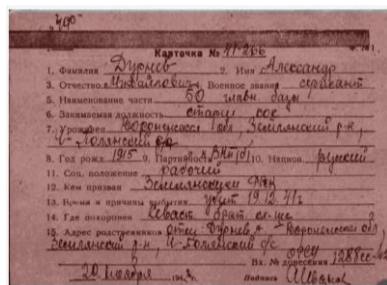 Карточка № 41-266
1. Фамилия Дурнев 2. Имя Александр
3. Отчество Михайлович 4. Военное звание сержант
5. Наименование части 50 главн. базы
6. Занимаемая должность старш
7. Уроженец Воронежская обл, Землянский р-н,
8. Год рожд. 1915 9. Партийность ВКП(б) 10. Национ. русский
11. Соц. положение рабочий
12. Кем призван Землянским РВК
13. Время и причины выбытия убит 19.12.41г
14. Где похоронен Севаст брат
15. Адрес родственников отец Дурнев А. Воронежская обл
Землянский р-н,
Вх. № донесения 1288сс-42
20 ноября Подпись